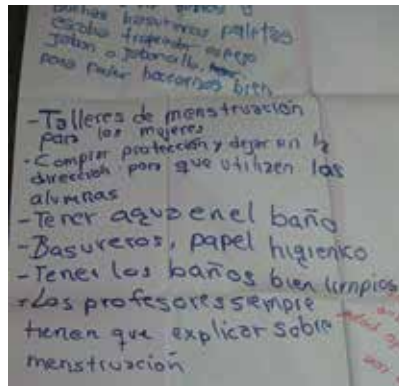 buenas basureros paletas
escoba trapeador espejo
Jabon o jaboncillo
para poder hacernos bien
- Talleres de menstruación
para las mujeres
- Comprar protección y dejar en la
dirección para que utilizen las
alumnas
- Tener agua en el baño
- Basureros, papel higienico
- Tener los baños bien limpios
- Los profesores siempre
tienen que explicar sobre
menstruación